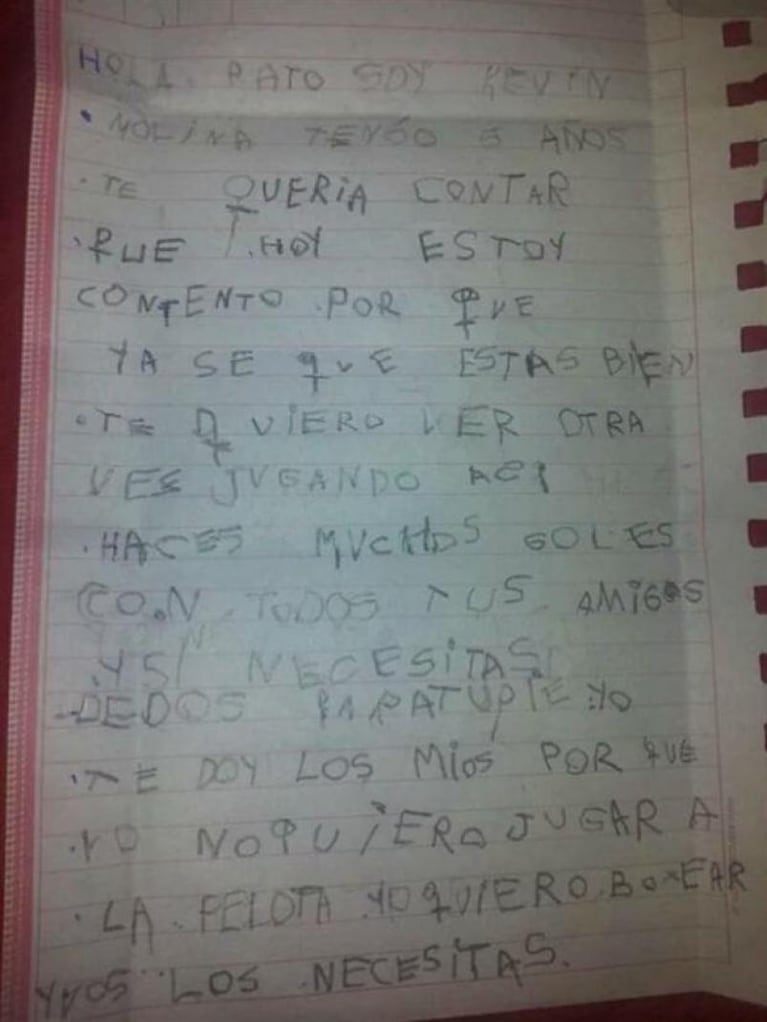 HOLA. PATO SOY KEVIN
MOLINA TENGO 6 AÑOS
TE QUERIA CONTAR
QUE HOY ESTOY
CONTENTO POR QUE
YA SE QUE ESTAS BIEN
TE QUIERO VER OTRA
VES JUGANDO
HACES MUCHOS GOLES
CON TODOS TUS AMIGOS
Y SI NECESITAS
DEDOS PARATUPIE YO
TE DOY LOS MIOS POR QUE
YO NOQUIERO JUGAR A
LA PELOTA YO QUIERO BOXEAR
Y VOS LOS NECESITAS.